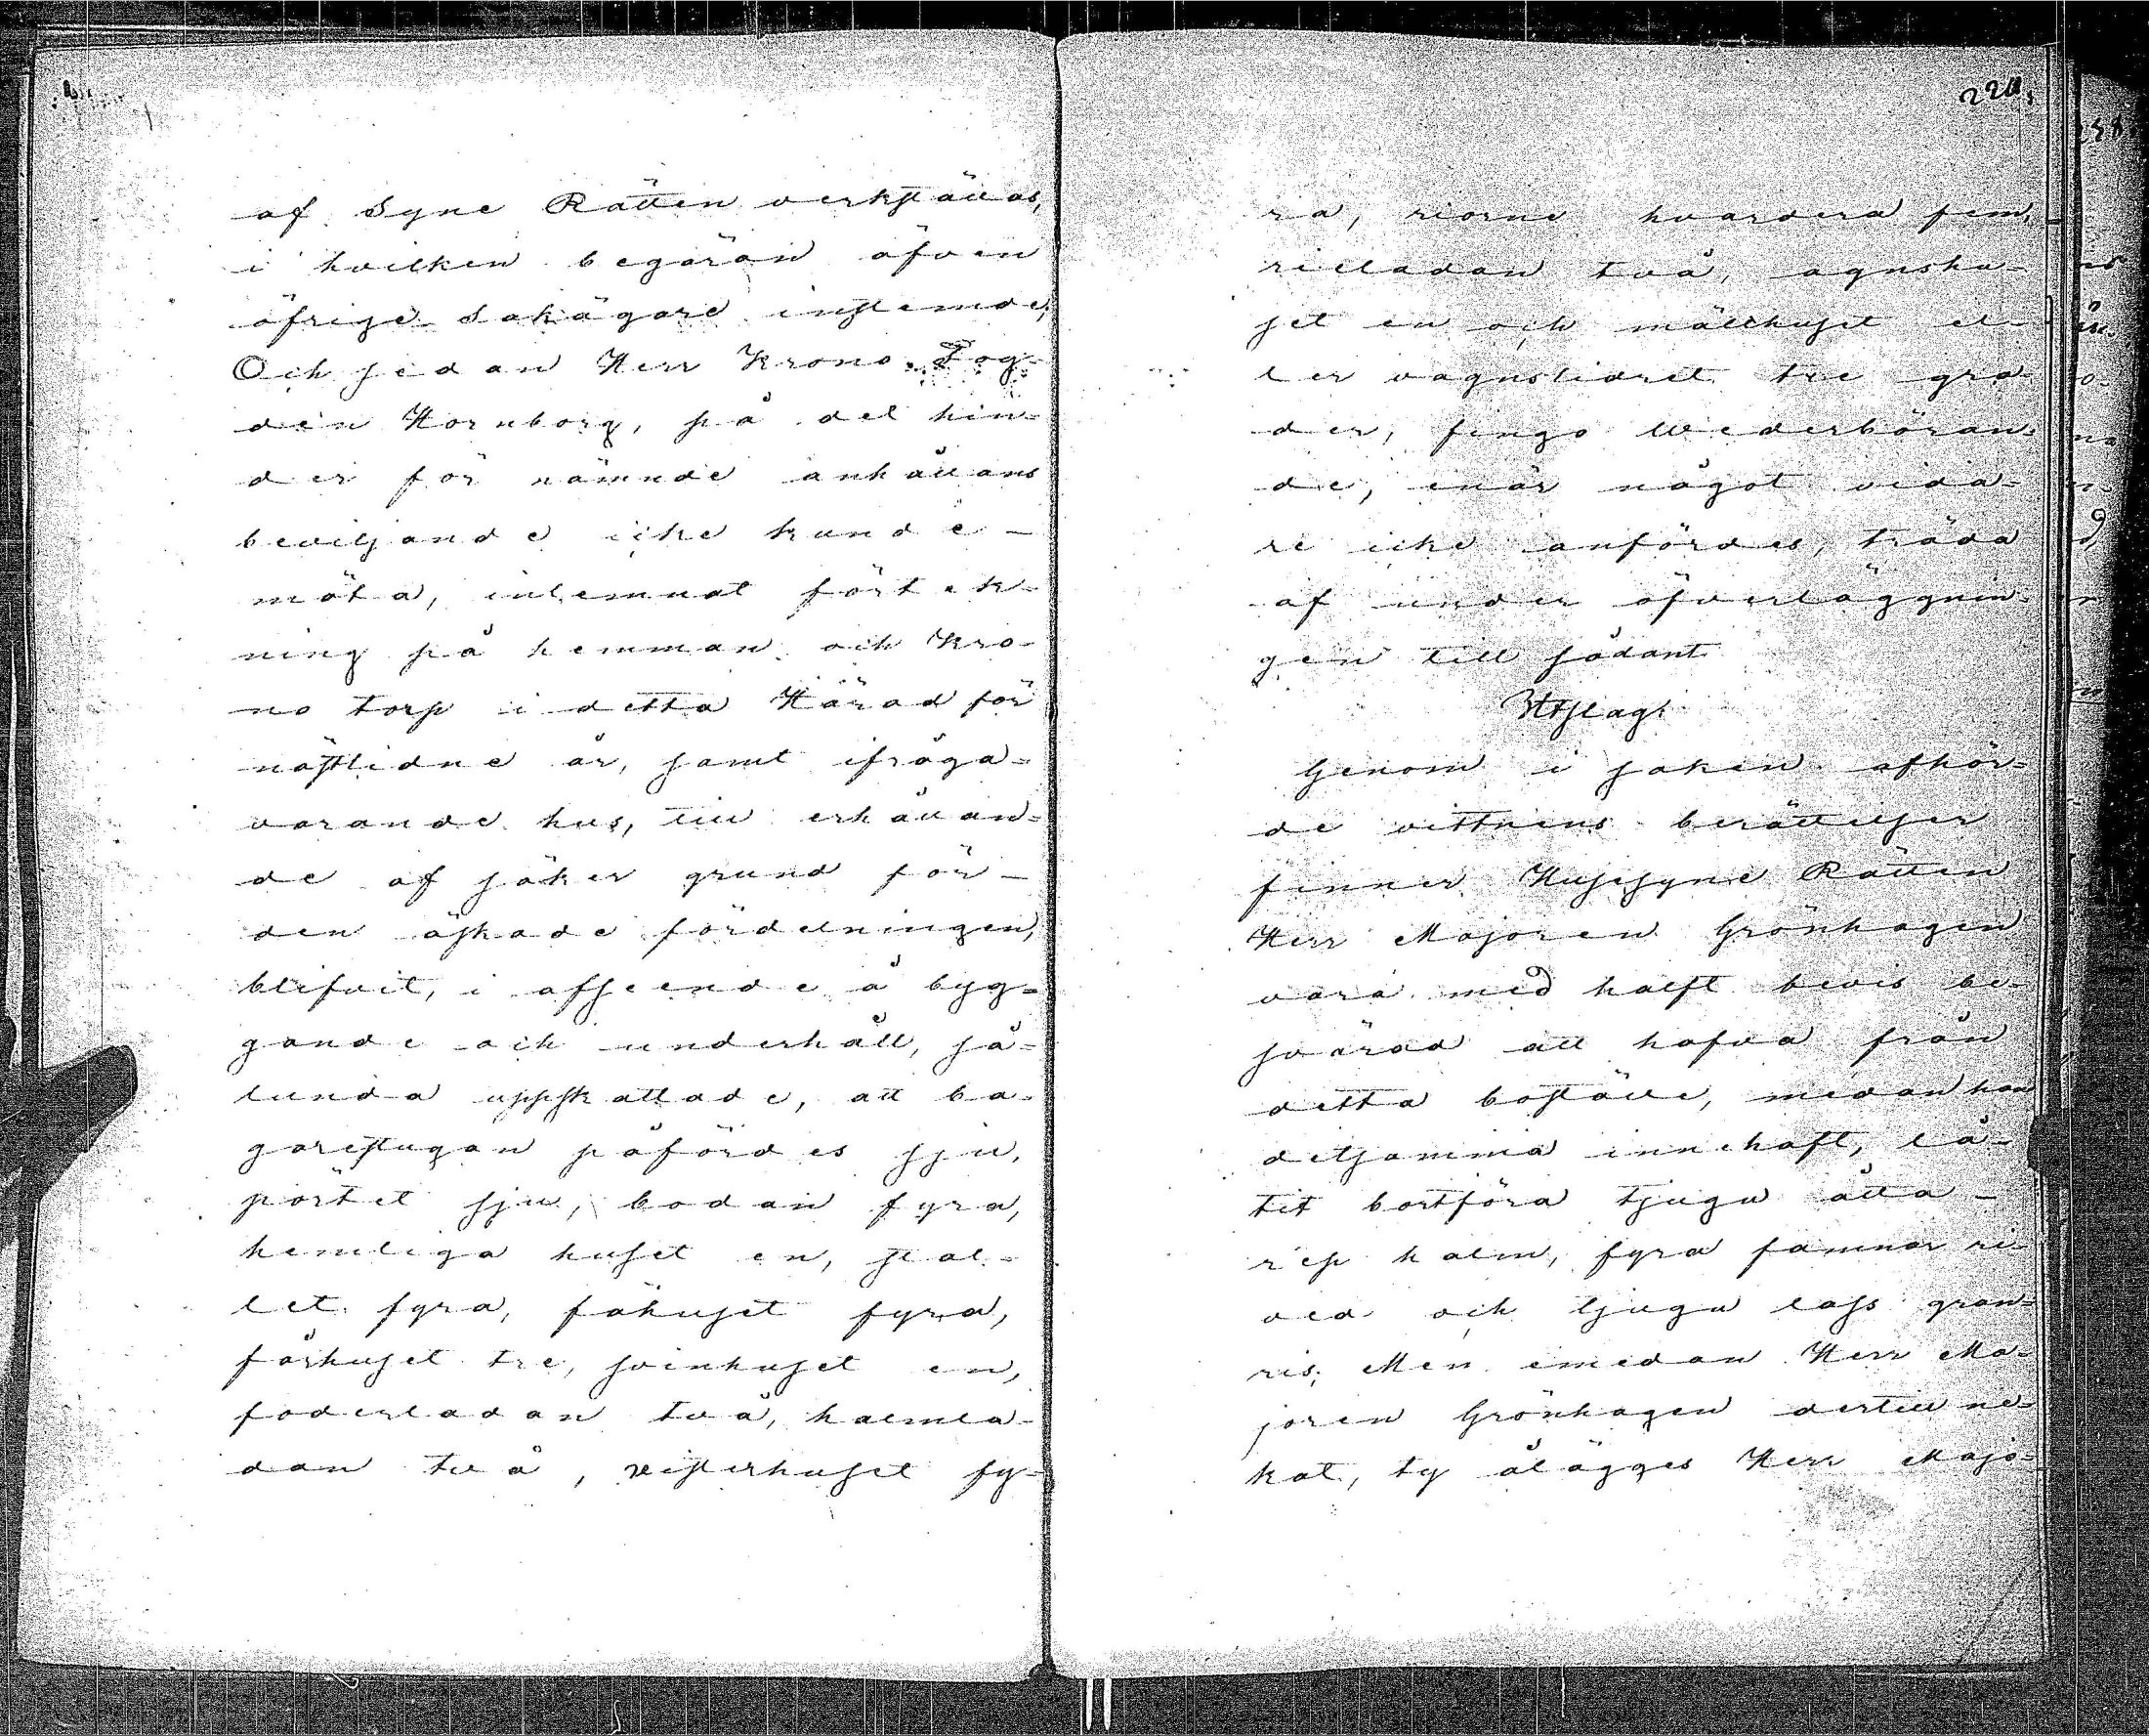 af Syne Rätten verkställas,
i hvilken begäran äfven
öfrige Sakägare instemde;
Och sedan Herr Krono Fog-
den Hornborg, på det hin-
der för nämnde anhållans
beviljande icke kunde
möta, inlemnat förtek-
ning på hemman och Kro-
no torp i detta Härad för
nästlidne år, samt ifråga-
varande hus, till erhållan-
de af säker grund för
den äskade fördelningen,
blifvit, i afseende å byg-
gande och underhåll, så-
lunda uppskattade, att ba-
garestugan påfördes sju,
pörtet sju, bodan fyra,
hemliga huset en, stal-
let fyra, fähuset fyra,
fårhuset tre, svinhuset en,
foderladan två, halmla-
dan två, visterhuset fy-
224,
ra, riorne hvardera fem,
rieladan två, agnshu-
set en och mälthuset el-
ler vagnslidret tre gra-
der, fingo Wederböran-
de, enär något vida-
re icke anfördes, träda
af under öfverläggnin-
gen till sådant
Utslag:
Genom i saken afhör-
de vittnens berättelser
finner Husesyne Rätten
Herr Majoren Grönhagen
vara med halft bevis be-
svärad att hafva från
detta boställe, medan han
detsamma innehaft, lå-
tit bortföra tjugu åtta
resp halm, fyra famnar ri-
ved och tjugu lass gran-
ris; Men emedan Herr Ma-
joren Grönhagen dertill ne-
kat, ty ålägges Herr Majo-